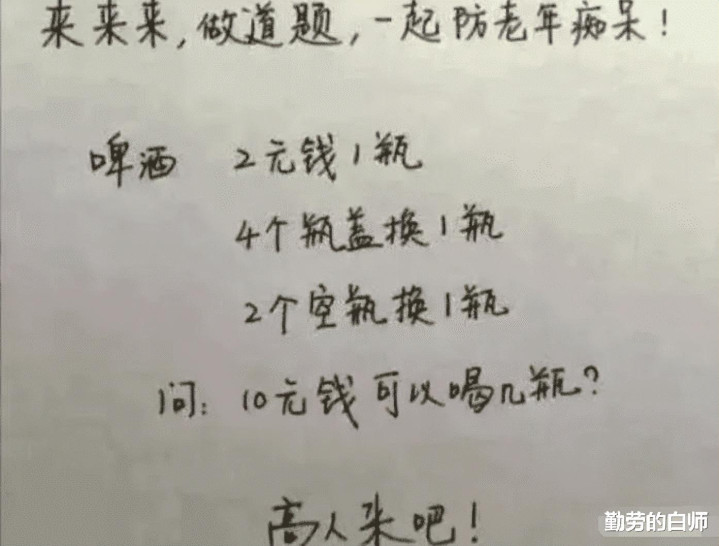 来来来,做道题,一起防老年痴呆!
啤酒 2元钱1瓶
4个瓶盖换1瓶
2个空瓶换1瓶
问:10元钱可以喝几瓶?
高人来吧!
勤劳的白师